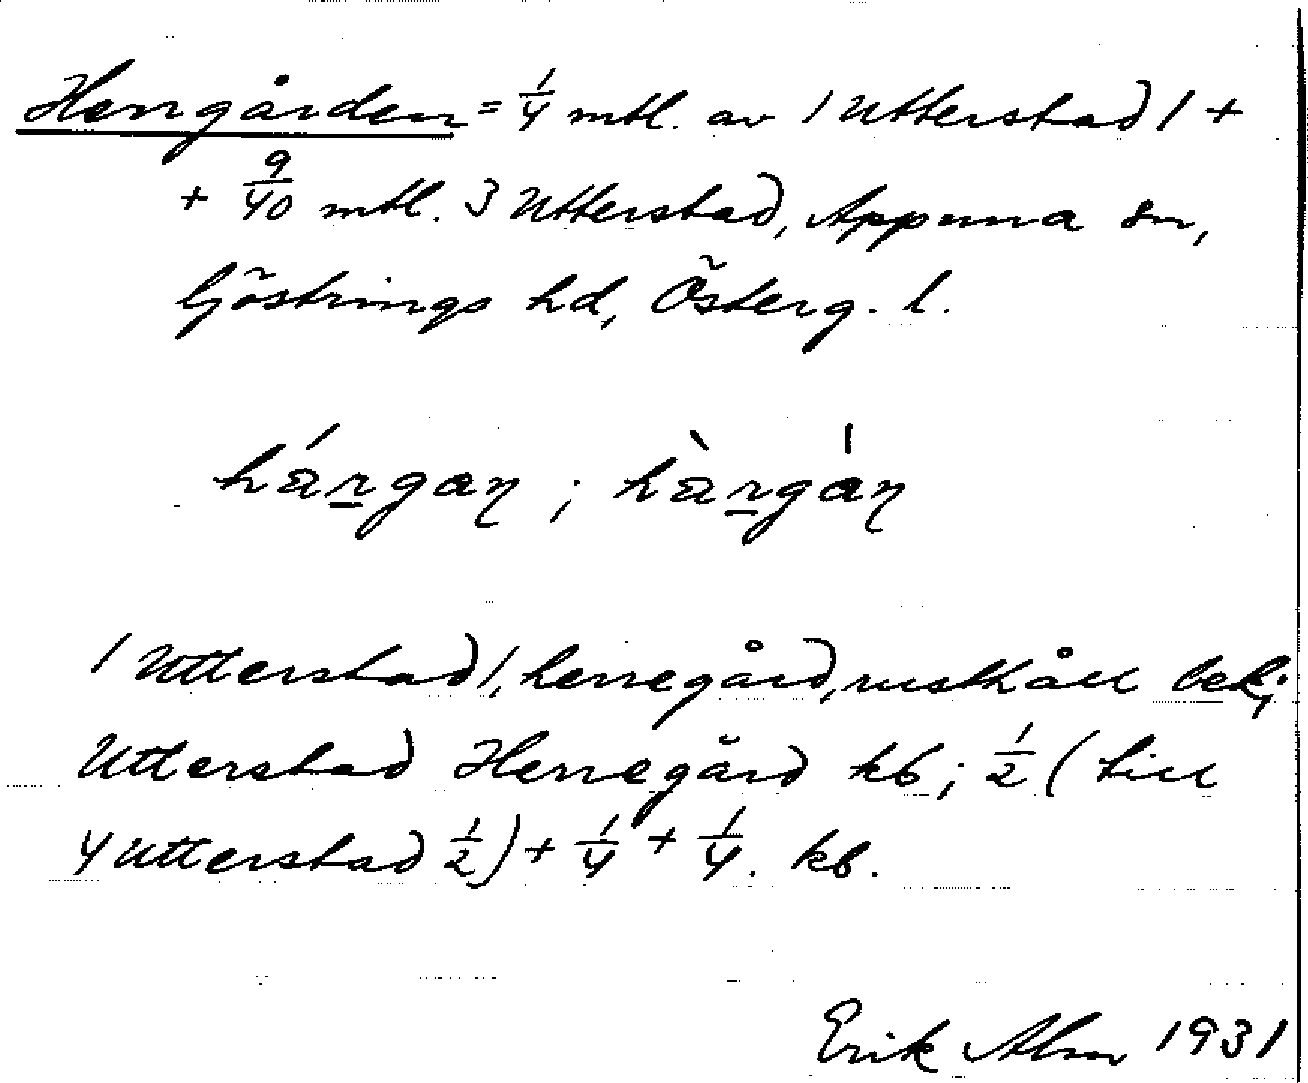 Herrgården = 1/4 mtl. av 1 Utterstad 1 +
+ 9/40 mtl. 3 Utterstad, Appuna sn,
Göstrings hd, Österg. l.
hárgan ; hàrgán
1 Utterstad 1, herregård, rusthåll bek;
Utterstad Herregård kb; 1/2 (till
4 Utterstad 1/2) + 1/4 + 1/4. kb.
Erik Alm 1931